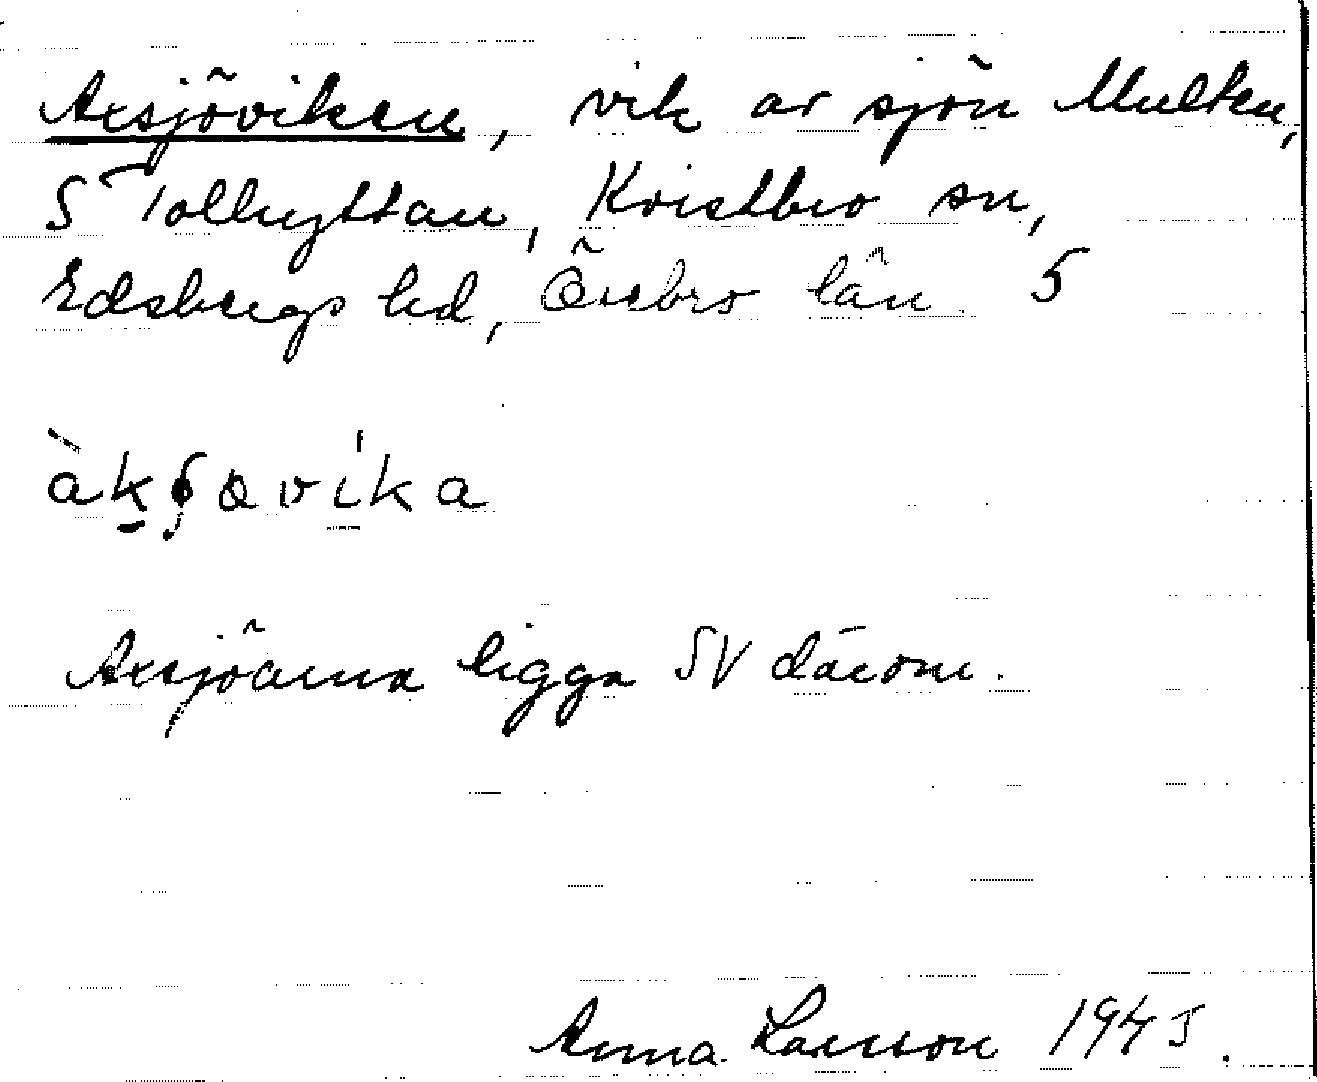 Axsjöviken, vik av sjön Multen,
S Tollhyttan, Kvistbro sn,
Edsbergs hd, Örebro län 5
àkʂɷvíka
Axsjöarna ligga SV därom.
Anna Larsson 1945.